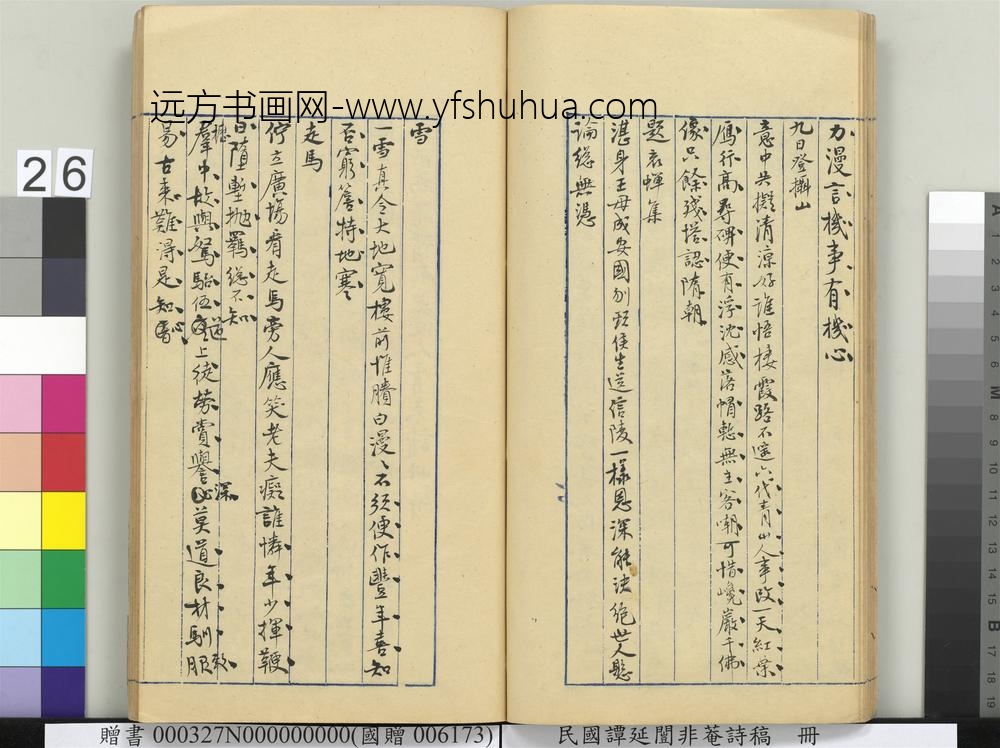 远方书画网-www.yfshuhua.com
力漫言機事有機心
九日登攝山
意中共擬清涼好誰悟棲霞路不遥六代青山人事改一天紅葉
雁行高尋碑便有浮沈感落帽慙無主客嘲可惜巉巖千佛
像只餘殘塔認隋朝
題哀蟬集
湛身王母成安國刎頸侯生送信陵一樣恩深能決絕世人懸
論總無憑
雪
一雪真令大地寬樓前惟賸白漫々不須便作豐年喜知
否窮簷特地寒
走馬
佇立廣場看走馬旁人應笑老夫癡誰憐年少揮鞭
日墮塹拋羈總不知
羣中故與駑駘伍道上徒勞賞譽深莫道良材馴服
易古來難得是知音
26
贈書 000327N000000000(國贈 006173)
民國譚延闓非菴詩稿 冊